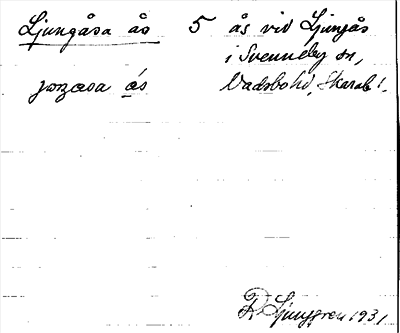 Ljungåsa ås 5 ås vid Ljungås
i Svenneby sn,
ås Vadsbo hd, Skarab. l.
R Ljunggren 1931